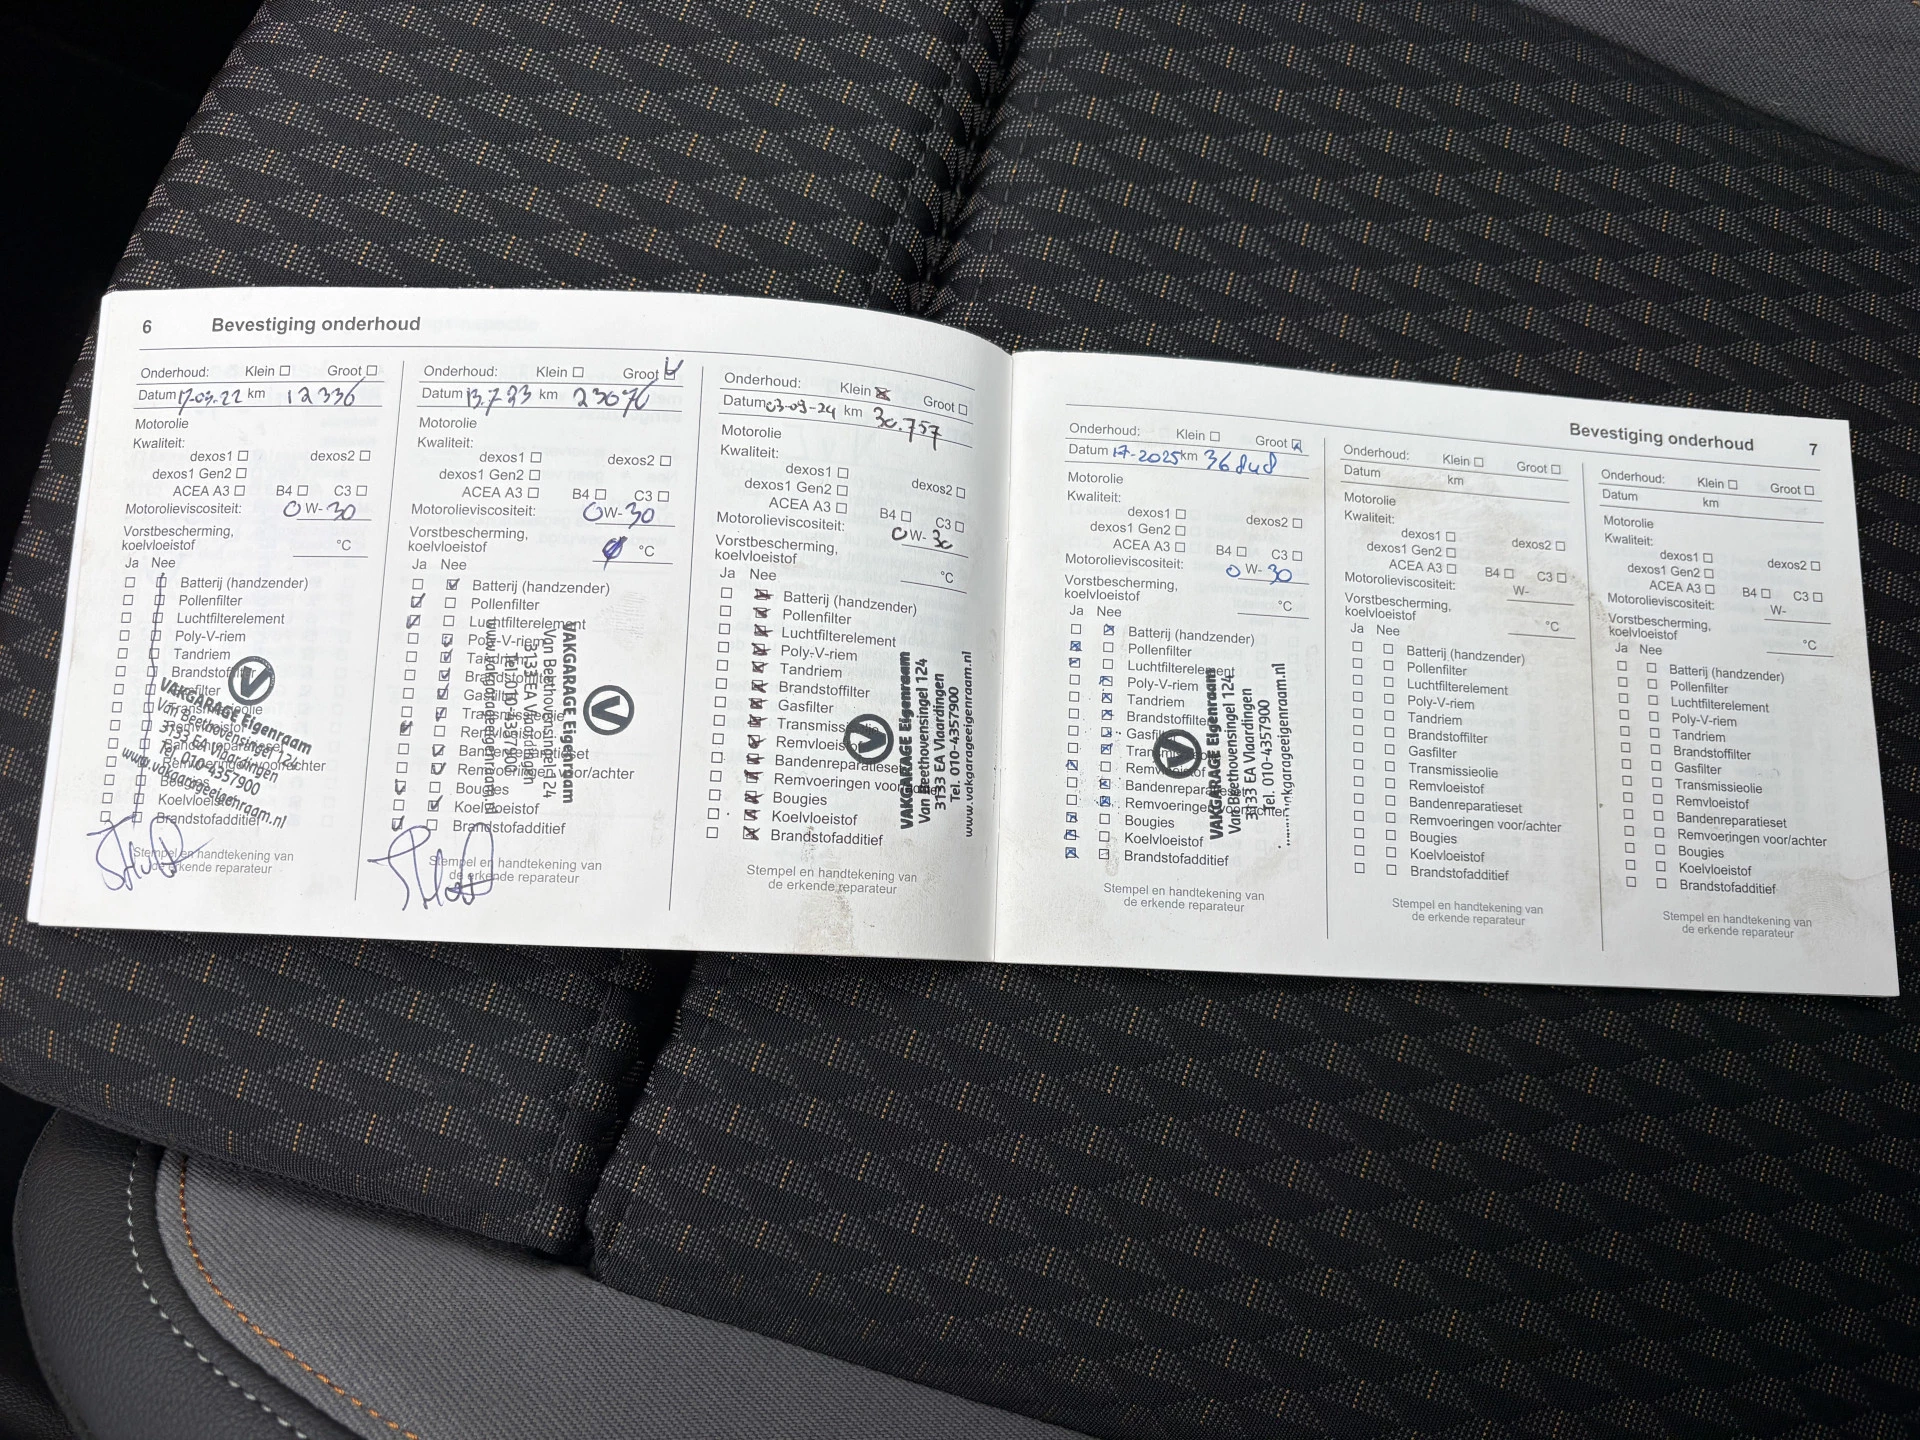 6 Bevestiging onderhoud
Onderhoud: Klein Groot
Datum 17-03-22 km 12336
Motorolie
Kwaliteit:
dexos1 dexos2
dexos1 Gen2
ACEA A3 B4 C3
Motorolieviscositeit: 0 W- 30
Vorstbescherming,
koelvloeistof °C
Ja Nee
Batterij (handzender)
Pollenfilter
Luchtfilterelement
Poly-V-riem
Tandriem
Brandstoffilter
Gasfilter
Transmissieolie
Remvloeistof
Bandenreparatieset
Remvoeringen voor/achter
Bougies
Koelvloeistof
Brandstofadditief
VAKGARAGE Eigenraam
Van Beethovensingel 124
3133 EA Vlaardingen
Tel. 010-4357900
www.vakgarageeigenraam.nl
Stempel en handtekening van
de erkende reparateur
Onderhoud: Klein Groot
Datum 13.7.23 km 23076
Motorolie
Kwaliteit:
dexos1 dexos2
dexos1 Gen2
ACEA A3 B4 C3
Motorolieviscositeit: 0 W- 30
Vorstbescherming,
koelvloeistof °C
Ja Nee
Batterij (handzender)
Pollenfilter
Luchtfilterelement
Poly-V-riem
Tandriem
Brandstoffilter
Gasfilter
Transmissieolie
Remvloeistof
Bandenreparatieset
Remvoeringen voor/achter
Bougies
Koelvloeistof
Brandstofadditief
VAKGARAGE Eigenraam
Van Beethovensingel 124
3133 EA Vlaardingen
Tel. 010-4357900
www.vakgarageeigenraam.nl
Stempel en handtekening van
de erkende reparateur
Onderhoud: Klein Groot
Datum 03-09-24 km 30.757
Motorolie
Kwaliteit:
dexos1
dexos1 Gen2 dexos2
ACEA A3 B4 C3
Motorolieviscositeit: 0 W- 30
Vorstbescherming,
koelvloeistof °C
Ja Nee
Batterij (handzender)
Pollenfilter
Luchtfilterelement
Poly-V-riem
Tandriem
Brandstoffilter
Gasfilter
Transmissieolie
Remvloeistof
Bandenreparatieset
Remvoeringen voor/achter
Bougies
Koelvloeistof
Brandstofadditief
VAKGARAGE Eigenraam
Van Beethovensingel 124
3133 EA Vlaardingen
Tel. 010-4357900
www.vakgarageeigenraam.nl
Stempel en handtekening van
de erkende reparateur
Bevestiging onderhoud 7
Onderhoud: Klein Groot
Datum 17-2025 km 36848
Motorolie
Kwaliteit:
dexos1 dexos2
dexos1 Gen2
ACEA A3 B4 C3
Motorolieviscositeit: 0 W- 30
Vorstbescherming,
koelvloeistof °C
Ja Nee
Batterij (handzender)
Pollenfilter
Luchtfilterelement
Poly-V-riem
Tandriem
Brandstoffilter
Gasfilter
Transmissieolie
Remvloeistof
Bandenreparatieset
Remvoeringen voor/achter
Bougies
Koelvloeistof
Brandstofadditief
VAKGARAGE Eigenraam
Van Beethovensingel 124
3133 EA Vlaardingen
Tel. 010-4357900
vakgarageeigenraam.nl
Stempel en handtekening van
de erkende reparateur
Onderhoud: Klein Groot
Datum km
Motorolie
Kwaliteit:
dexos1 dexos2
dexos1 Gen2
ACEA A3 B4 C3
Motorolieviscositeit: W-
Vorstbescherming,
koelvloeistof °C
Ja Nee
Batterij (handzender)
Pollenfilter
Luchtfilterelement
Poly-V-riem
Tandriem
Brandstoffilter
Gasfilter
Transmissieolie
Remvloeistof
Bandenreparatieset
Remvoeringen voor/achter
Bougies
Koelvloeistof
Brandstofadditief
Stempel en handtekening van
de erkende reparateur
Onderhoud: Klein Groot
Datum km
Motorolie
Kwaliteit:
dexos1 dexos2
dexos1 Gen2
ACEA A3 B4 C3
Motorolieviscositeit: W-
Vorstbescherming,
koelvloeistof °C
Ja Nee
Batterij (handzender)
Pollenfilter
Luchtfilterelement
Poly-V-riem
Tandriem
Brandstoffilter
Gasfilter
Transmissieolie
Remvloeistof
Bandenreparatieset
Remvoeringen voor/achter
Bougies
Koelvloeistof
Brandstofadditief
Stempel en handtekening van
de erkende reparateur